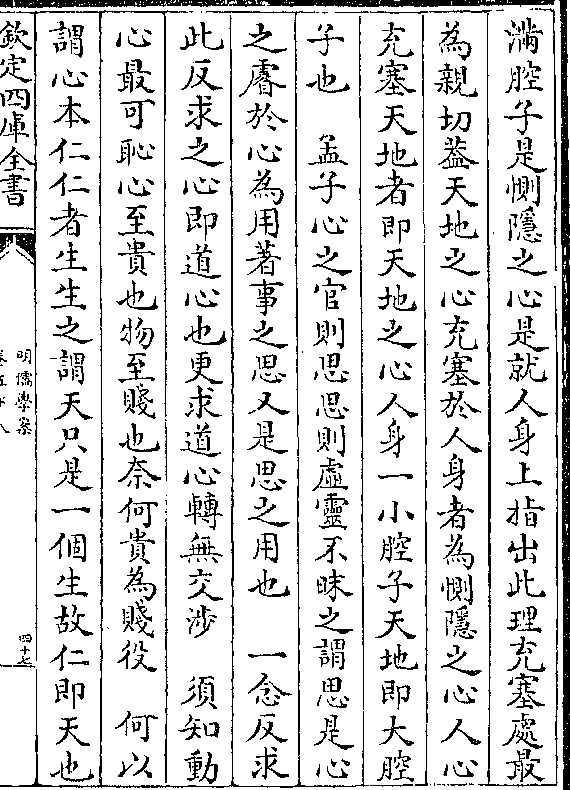 滿腔子是惻隱之心是就人身上指出此理充塞處最
為親切葢天地之心充塞於人身者為惻隱之心人心
充塞天地者即天地之心人身一小腔子天地即大腔
子也　孟子心之官則思思則虛靈不昧之謂思是心
之睿於心為用著事之思又是思之用也　一念反求
此反求之心即道心也更求道心轉無交涉　須知動
心最可恥心至貴也物至賤也奈何貴為賤役　何以
謂心本仁仁者生生之謂天只是一個生故仁即天也
欽定四庫全書
明儒學案
四十七